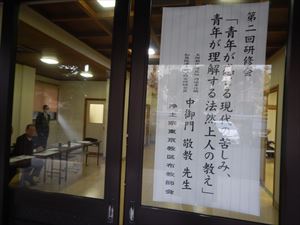 第二回研修会
「青年が感じる現代の苦しみ、
青年が理解する法然上人の教え」
中御門 敬教 先生
浄土宗東京教区布教師会